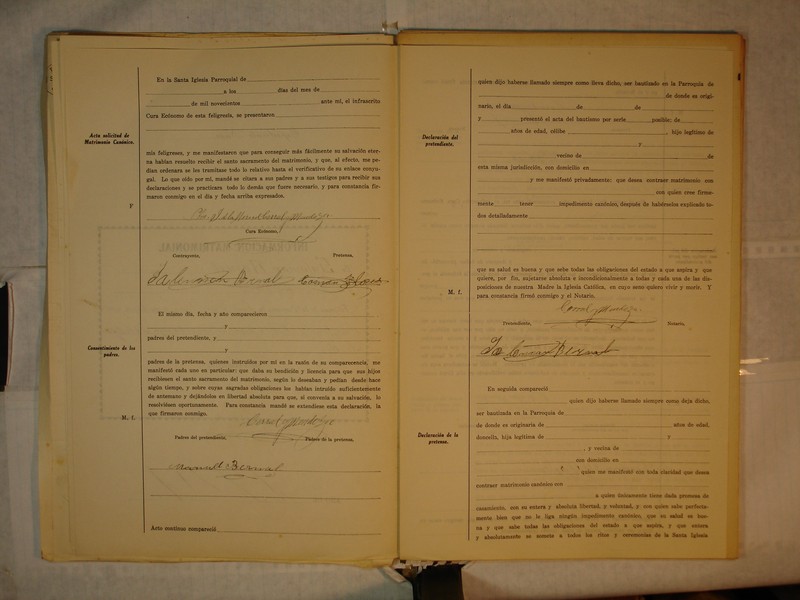 En la Santa Iglesia Parroquial de
a los días del mes de
de mil novecientos ante mí, el infrascrito
Cura Ecónomo de esta feligresía, se presentaron
Acta solicitud de
Matrimonio Canónico.
mis feligreses, y me manifestaron que para conseguir más fácilmente su salvación eter-
na habían resuelto recibir el santo sacramento del matrimonio, y que, al efecto, me pe-
dían ordenara se les tramitase todo lo relativo hasta el verificativo de su enlace conyu-
gal. Lo que oído por mí, mandé se citara a sus padres y a sus testigos para recibir sus
declaraciones y se practicara todo lo demás que fuere necesario, y para constancia fir-
maron conmigo en el día y fecha arriba expresados.
F
Cura Ecónomo,
Contrayente, Pretensa,
Bernal
El mismo día, fecha y año comparecieron
y
padres del pretendiente, y
Consentimiento de los
padres.
y
padres de la pretensa, quienes instruídos por mí en la razón de su comparecencia, me
manifestó cada uno en particular: que daba su bendición y licencia para que sus hijos
recibiesen el santo sacramento del matrimonio, según lo deseaban y pedían desde hace
algún tiempo, y sobre cuyas sagradas obligaciones los habían intruído suficientemente
de antemano y dejándolos en libertad absoluta para que, si convenía a su salvación, lo
resolviesen oportunamente. Para constancia mandé se extendiese esta declaración, la
que firmaron conmigo.
M. f.
Padres del pretendiente, Padres de la pretensa,
Manuel Bernal
Acto continuo compareció
quien dijo haberse llamado siempre como lleva dicho, ser bautizado en la Parroquia de
de donde es origi-
nario, el día de de
y presentó el acta del bautismo por serle posible: de
años de edad, célibe , hijo legítimo de
Declaración del
pretendiente.
y
vecino de de
esta misma jurisdicción, con domicilio en
y me manifestó privadamente: que desea contraer matrimonio con
con quien cree firme-
mente tener impedimento canónico, después de habérselos explicado to-
dos detalladamente
que su salud es buena y que sabe todas las obligaciones del estado a que aspira y que
quiere, por fin, sujetarse absoluta e incondicionalmente a todas y cada una de las dis-
posiciones de nuestra Madre la Iglesia Católica, en cuyo seno quiere vivir y morir. Y
para constancia firmó conmigo y el Notario.
M. f.
Pretendiente, Notario.
Bernal
En seguida compareció
quien dijo haberse llamado siempre como deja dicho,
ser bautizada en la Parroquia de
de donde es originaria de años de edad,
Declaración de la
pretensa.
doncella, hija legítima de y
, y vecina de
con domicilio en
quien me manifestó con toda claridad que desea
contraer matrimonio canónico con
a quien únicamente tiene dada promesa de
casamiento, con su entera y absoluta libertad, y voluntad, y con quien sabe perfecta-
mente bien que no le liga ningún impedimento canónico, que su salud es bue-
na y que sabe todas las obligaciones del estado a que aspira, y que entera
y absolutamente se somete a todos los ritos y ceremonias de la Santa Iglesia